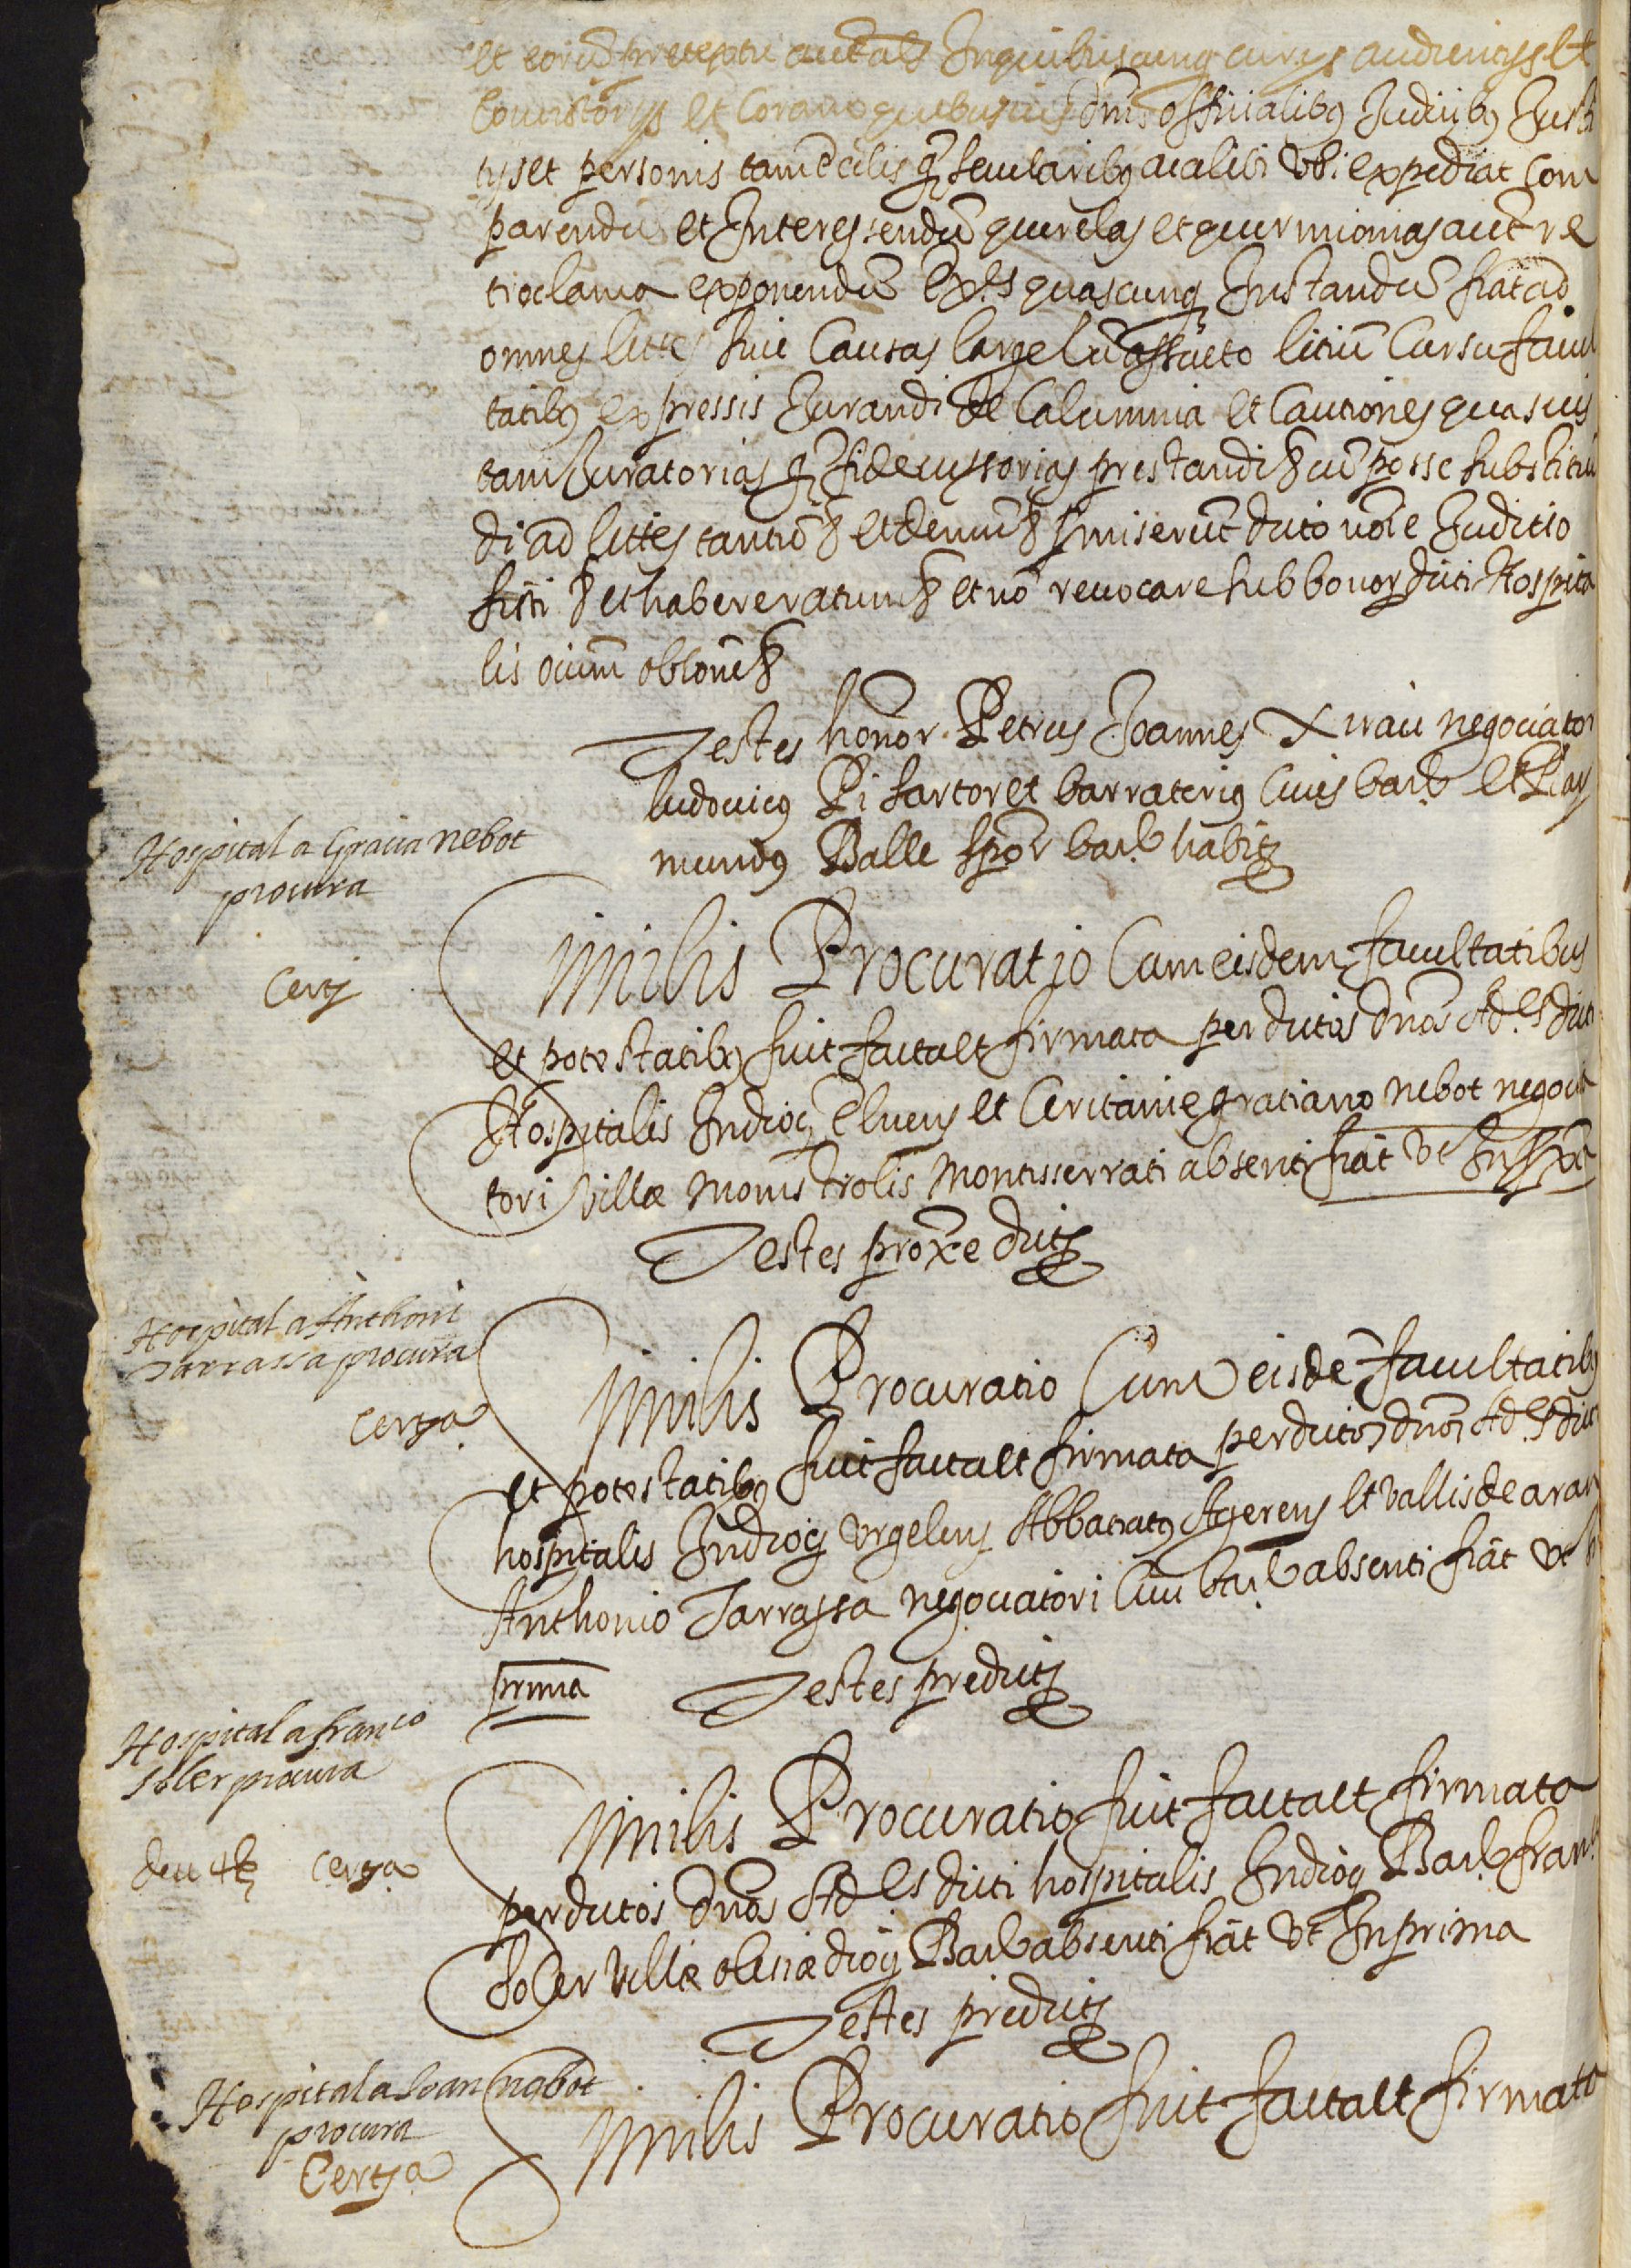 et eorum pretextu auctals Inquibuscunq curys audiencys et
Concistorys et Coram quibusuis dnis offitialibq Judicibq Justi
tys et personis tam eclis q secularibq ac alibi Vbi expediat Com
parendu et Interessendu querelas et querimonias aut re
tioclama exponendu quascunq Instandu fiat ad
omnes lites siue Causas large cu assueto litiu Cursu facul
tatibq expressis Jurandi de Calumnia et Cautiones quasuis
tam Juratorias q fideiussorias prestandi cu posse substitue
di ad lites tantu et demu promiserut dicto noie Juditio
sisti et habere ratum et no reuocare sub bonor dicti Hospita
lis oium oblone
Testes honor. Petrus Joannes Xirau negociator
ludouicq Pi sartor et barraterig Ciues barc et Ray
mundq Balle spor barc habit
Hospital a Gracia nebot
procura
Cert
Similis Procuratio Cum eisdem facultatibus
et potestatibq fuit facta et firmata per dictos dnos Ad.es dicti
Hospitalis In dioc Eluen et Ceritanie gratiano nebot negocia
tori Villæ Monistrolis Montisserrati absenti fiat Vt In
Testes proxe dicti
Hospital a Anthoni
Tarrassa procura
Certa
Similis Procuratio Cum eisde facultatibq
et potestatibq fuit facta et firmata per dictos dnos Ad.es dicti
hospitalis In dioc Vrgelens Abbatiatq Ageren et Vallis de aran
Anthonio Tarrassa negociatori Ciui barc absenti fiat Vt In
prima Testes predicti
Hospital a franco
soler procura
deu 4 Certa
Similis Procuratio fuit facta et firmata
per dictos dnos Ad.es dicti hospitalis In dioc Barc franco
Soler Villæ olesiæ dioc Barc absenti fiat Vt In prima
Testes predicti
Hospital a Joan nabot
procura
Certa
Similis Procuratio fuit facta et firmata